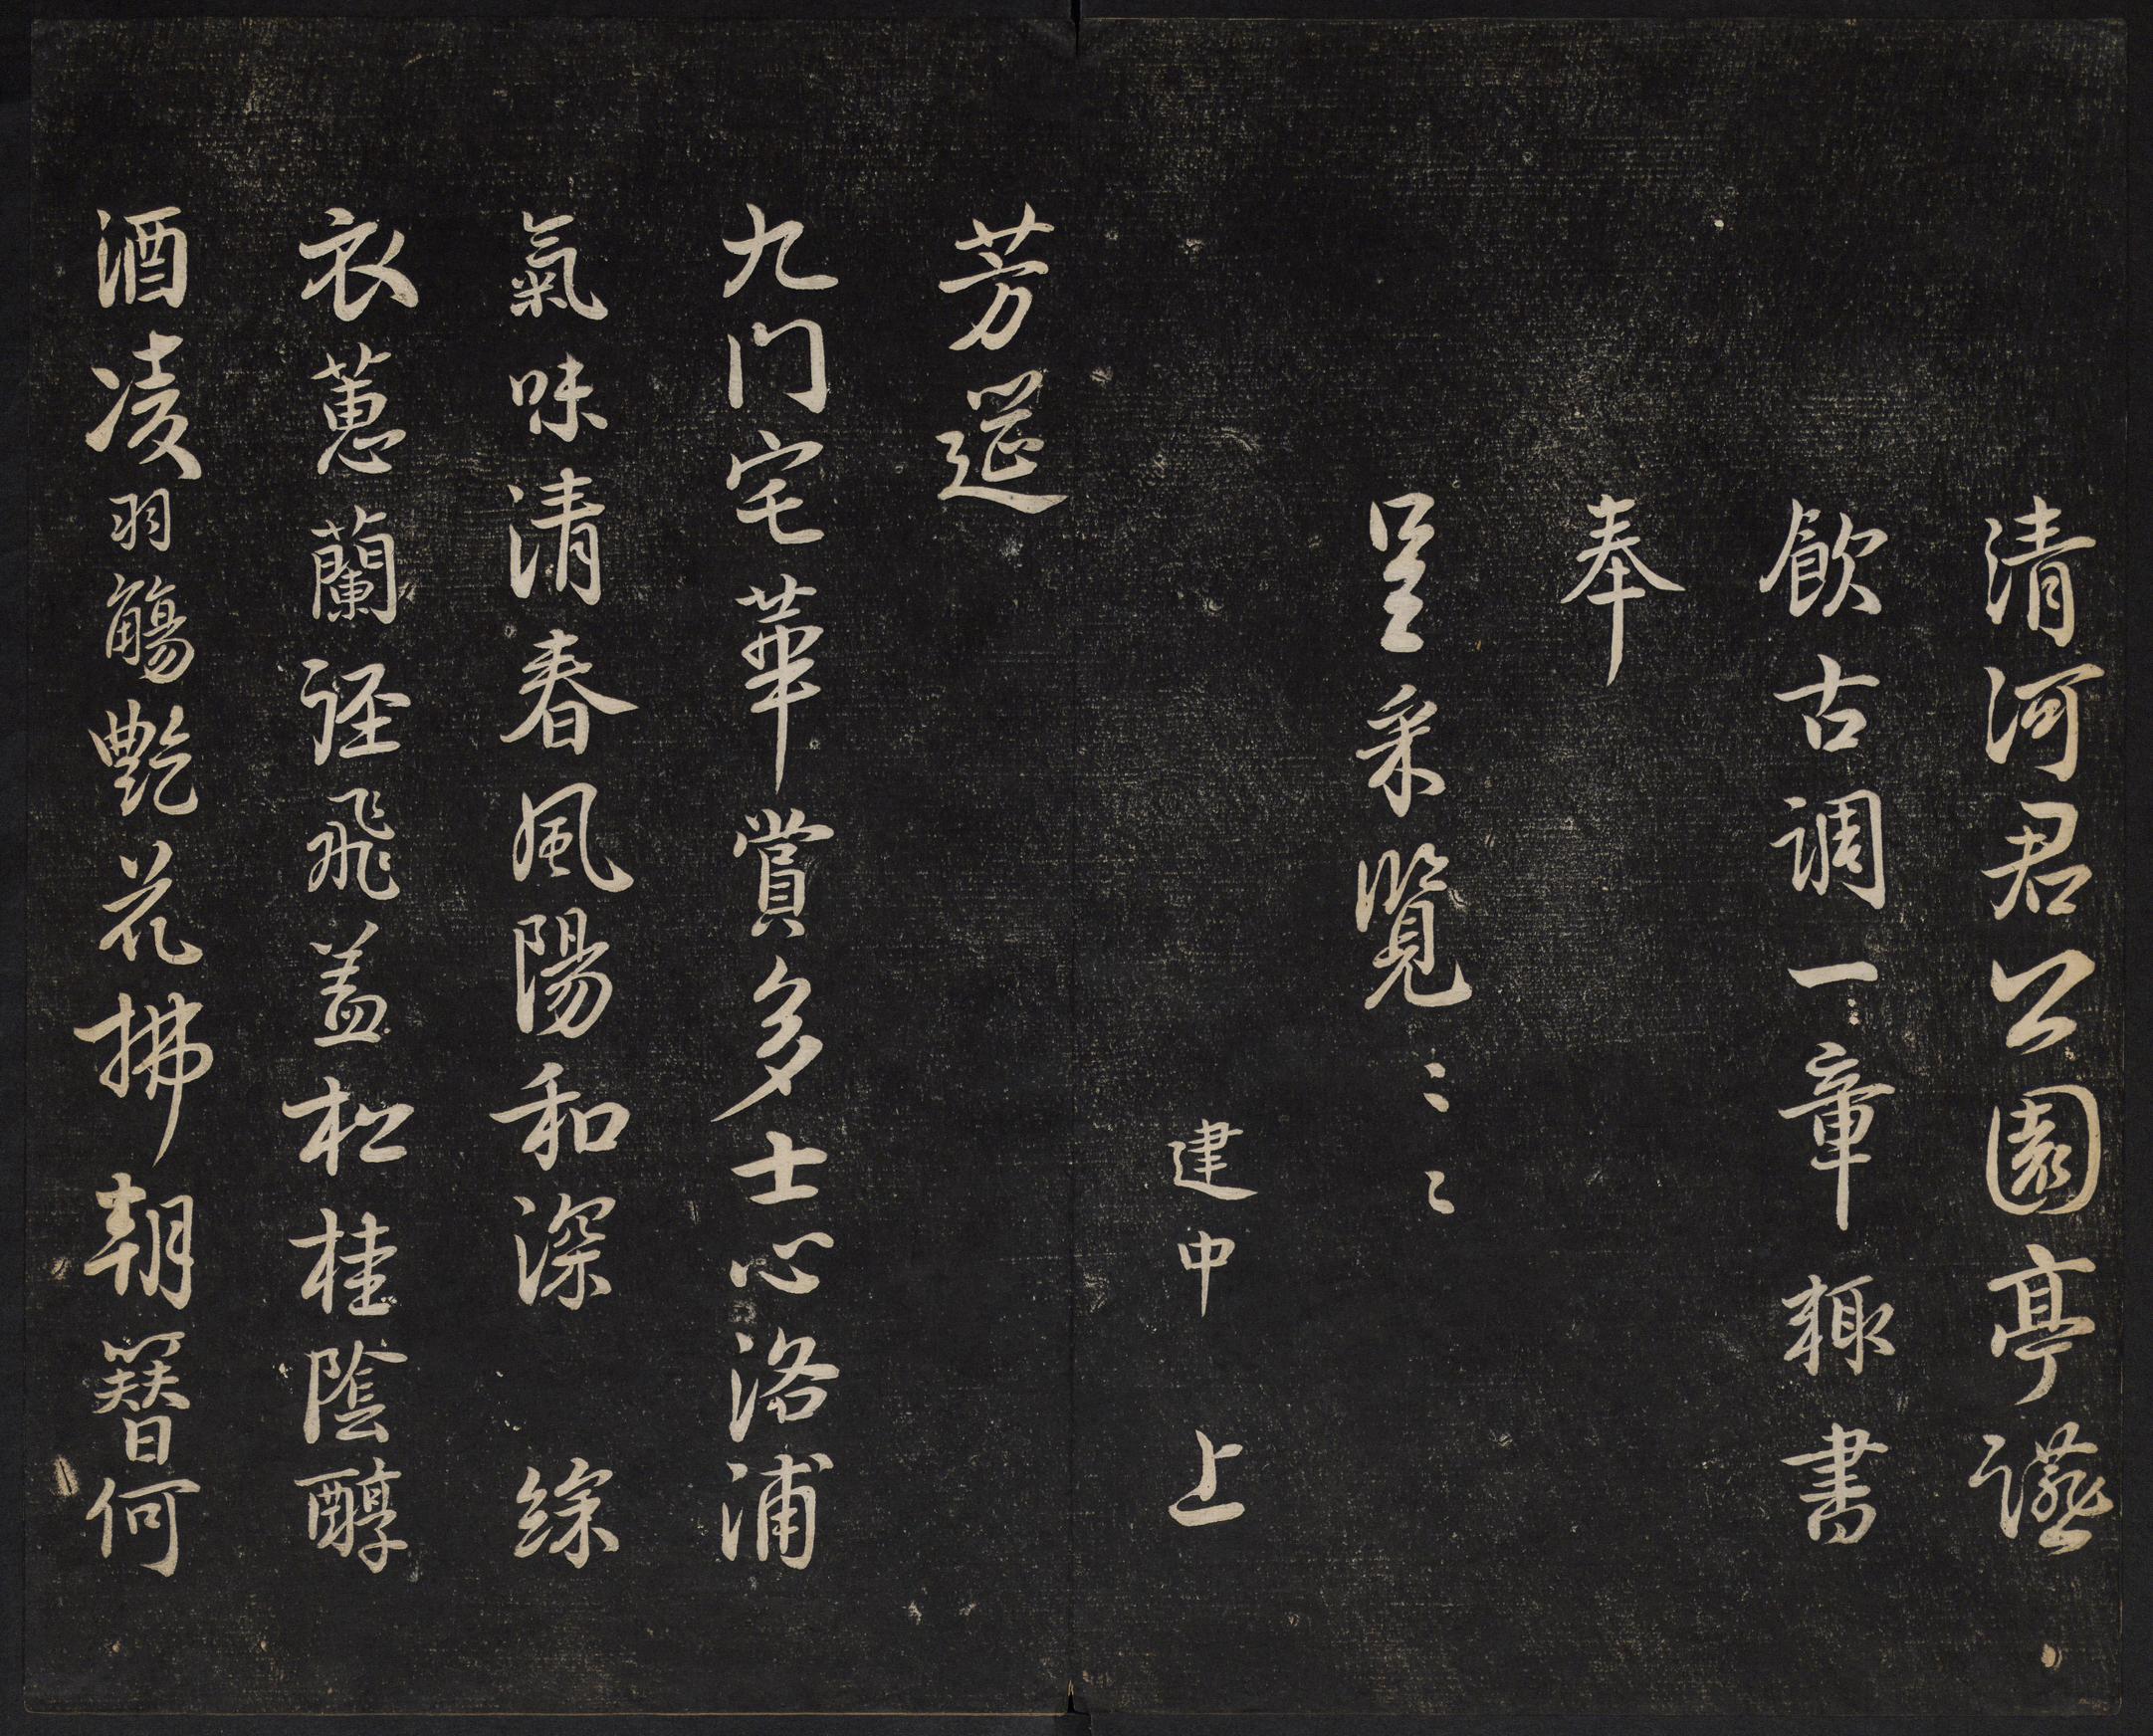 清河君公園亭讌
飲古調一章輙書
奉
呈采覧〻〻
建中 上
芳筵
九门宅華賞多士心洛浦
氣味清春風陽和深 綜
衣蕙蘭徑飛盖松桂陰醇
酒凌羽觴艶花拂朝簪何